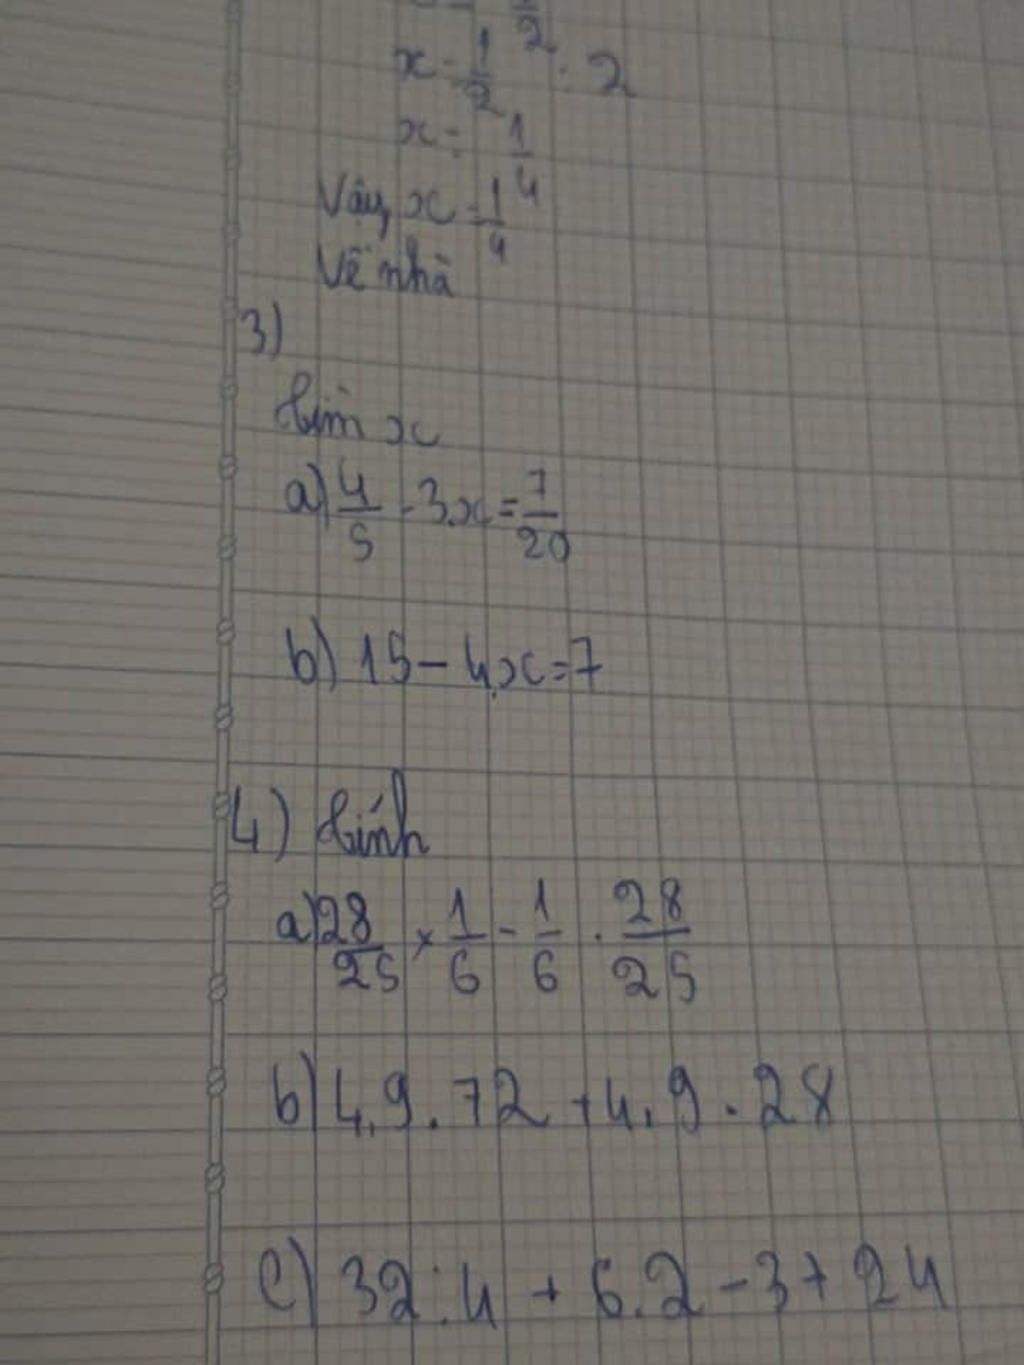 x = 1/2 : 2
x = 1/4
Vậy x = 1/4
Về nhà
3)
tìm x
a) 4/5 - 3.x = 7/20
b) 15 - 4.x = 7
4) tính
a) 28/25 × 1/6 - 1/6 . 28/25
b) 4,9 . 72 + 4,9 . 28
c) 32 : 4 + 6.2 - 3 + 24